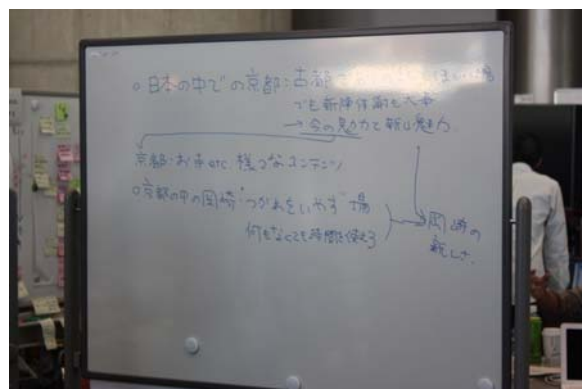 ○日本の中での京都:古都
でも新陳代謝も大事
→今の魅力と新しい魅力
京都:お寺etc. 様々なコンテンツ
○京都の中の岡崎:"つかれをいやす"場
何もなくても時間を使える
岡崎の
新しさ